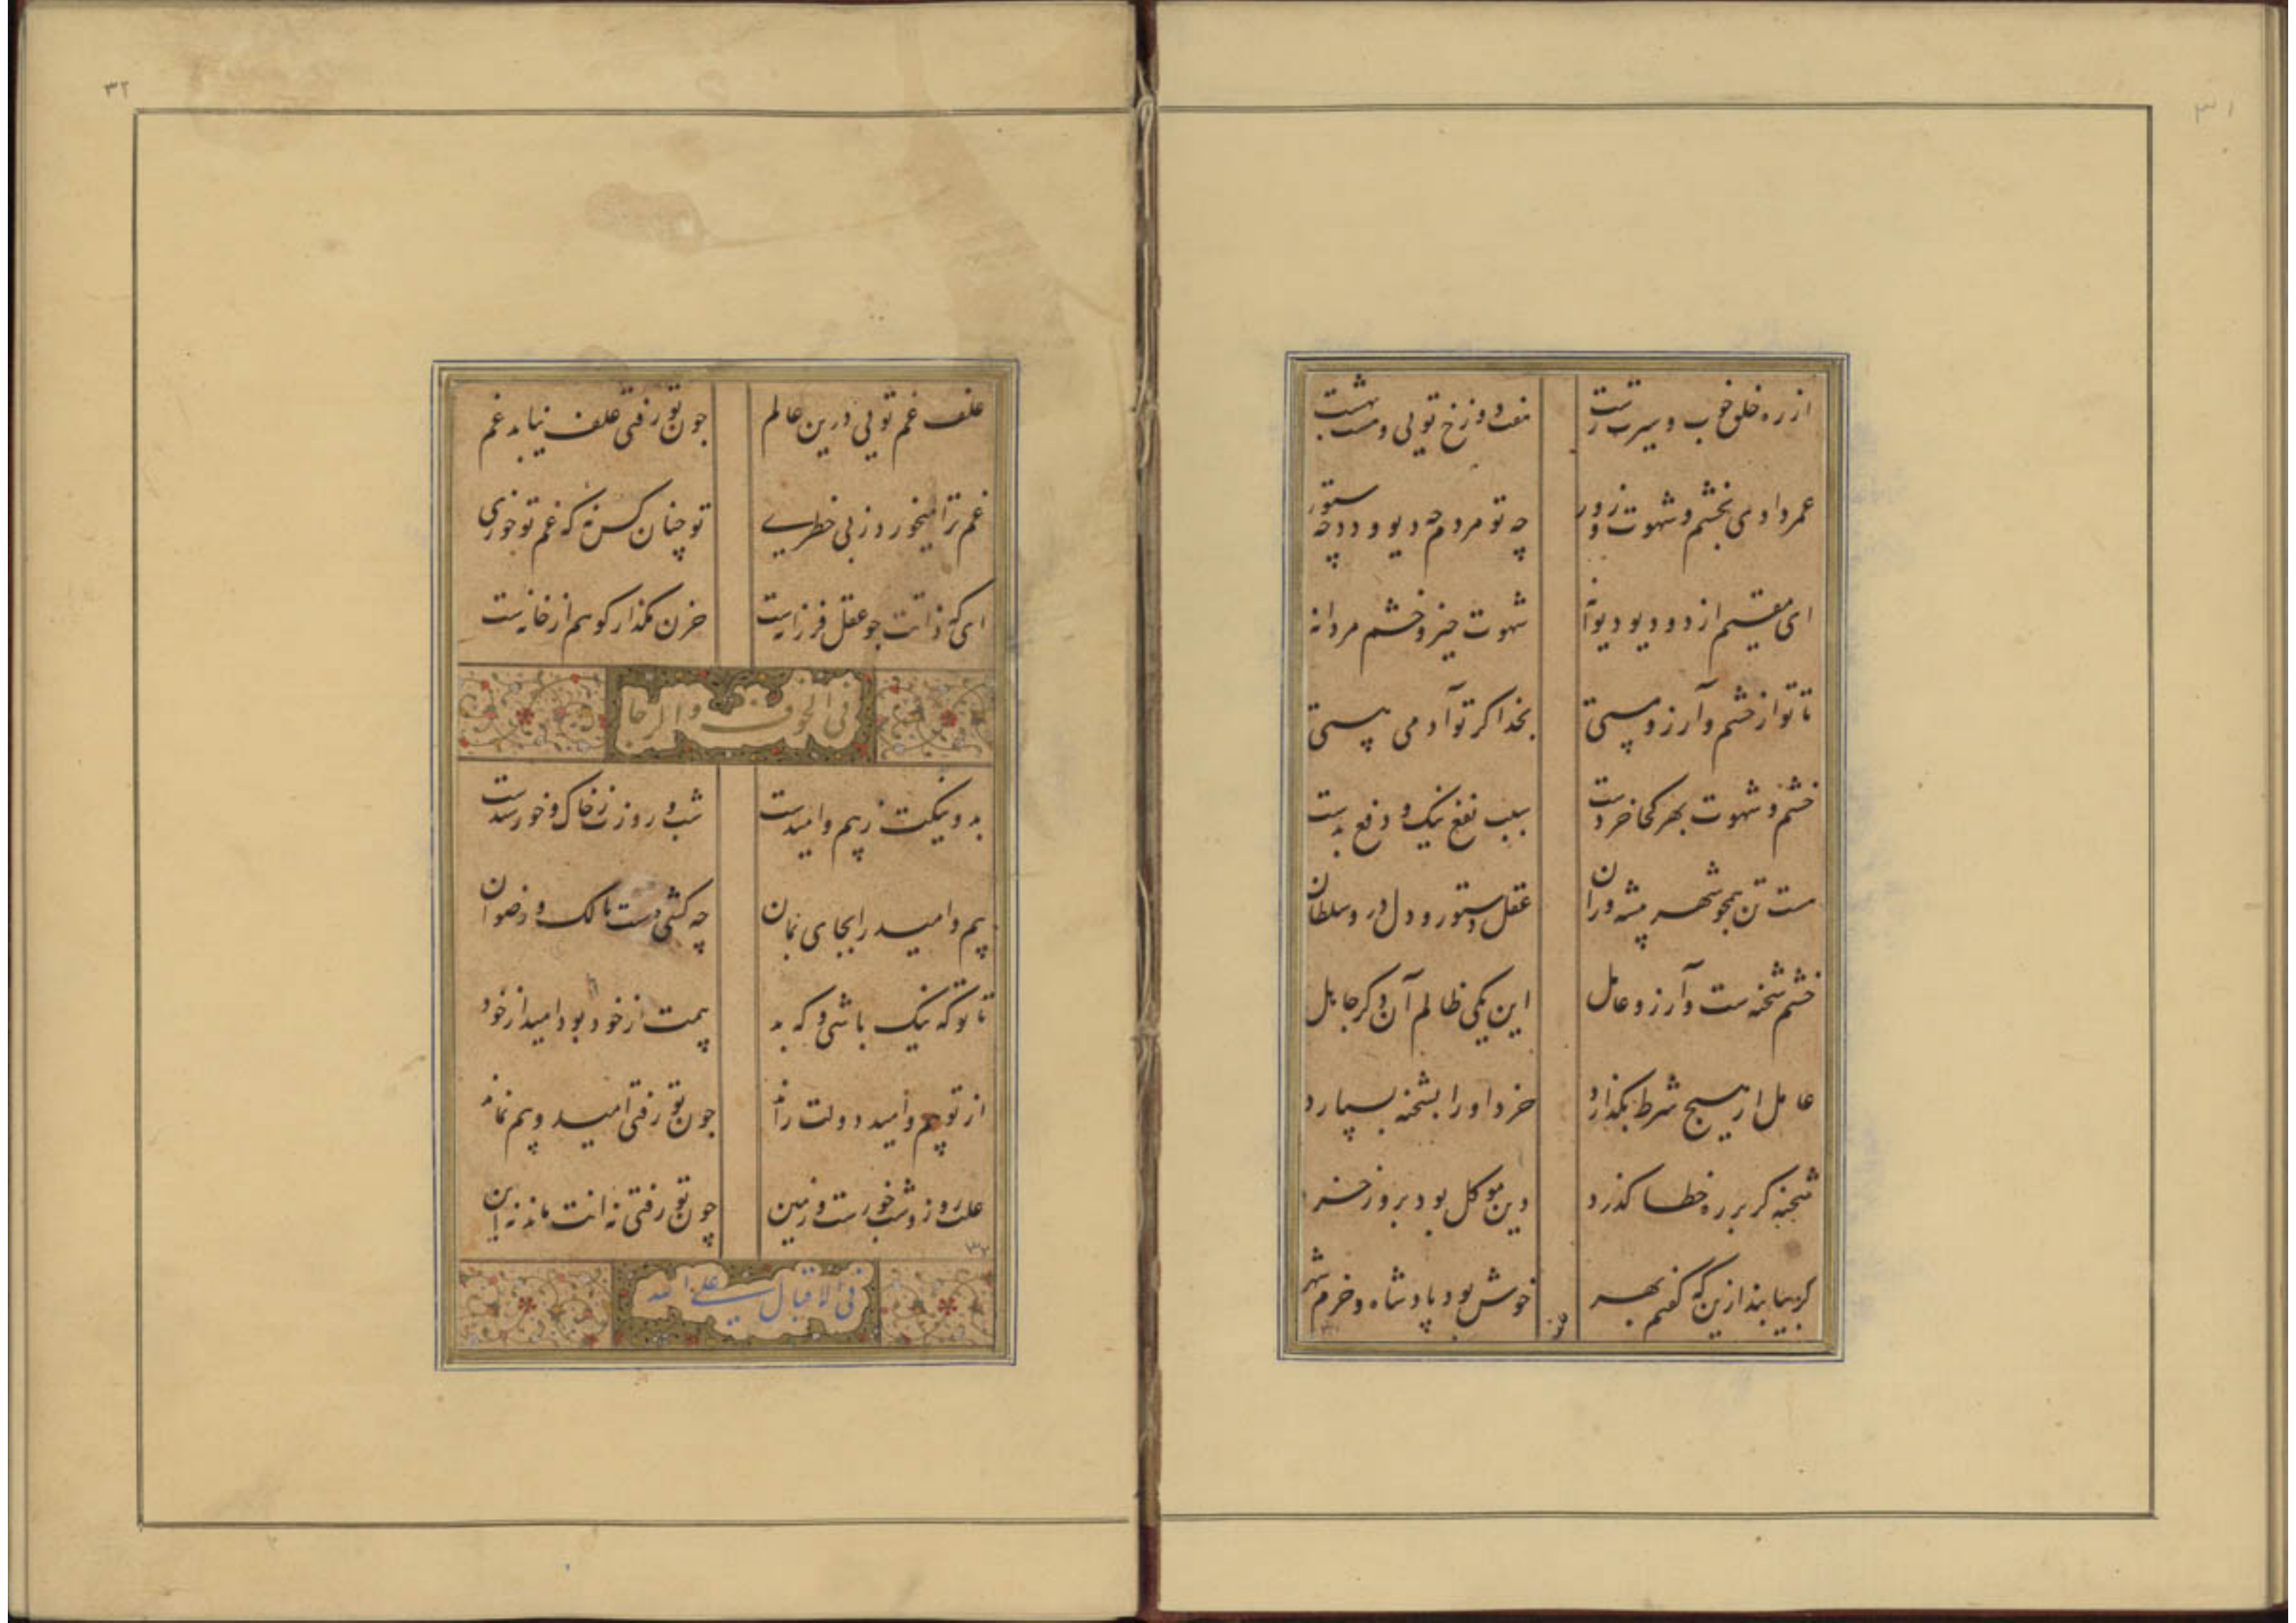 ۳۱
از ره خلق خوب و سیرت زشت
هفت دوزخ تویی و هشت بهشت
عمر دادی بخشم و شهوت و زور
چه تو مردم چه دیو و دد چه ستور
ای مقیم از دد و دیو و دیوانه
شهوت حیز و خشم مردانه
تا تو از خشم و آرزو مستی
بخدا کر تو آدمی هستی
خشم و شهوت بهر کجا خردست
سبب نفع نیک و دفع بدست
هست تن همچو شهر پیشه وران
عقل دستور و دل در و سلطان
خشم شحنه ست و آرزو عامل
این یکی ظالم آن دگر جاهل
عامل ار هیچ شرط بگذارد
خرد او را بشحنه بسپارد
شحنه کر بر ره خطا گذرد
دین موکل بود برو ز خرد
کر بیابند ازین که گفتم بهر
خوش بود پادشاه و خرم شهر
۳۲
علف غم تویی درین عالم
جون تو رفتی علف نیابد غم
غم ترا میخورد ز بی خطری
تو چنان کس نه که غم تو خوری
ای که ذاتت جو عقل فرزانیست
حزن بگذار کو هم از خانیست
فی الخوف والرجا
بد و نیکت ز بیم و امیدست
شب و روزت ز خاک و خورشیدست
بیم و امید را بجای نمان
چه کشی دست مالک و رضوان
تا تو که نیک باشی و که بد
بیمت از خود بود امید از خود
از تو بیم و امید دولت راند
جون تو رفتی امید و بیم نماند
علت روز و شب خورست و زمین
چون تو رفتی نه آنت ماند نه این
فی الاقبال علی الله